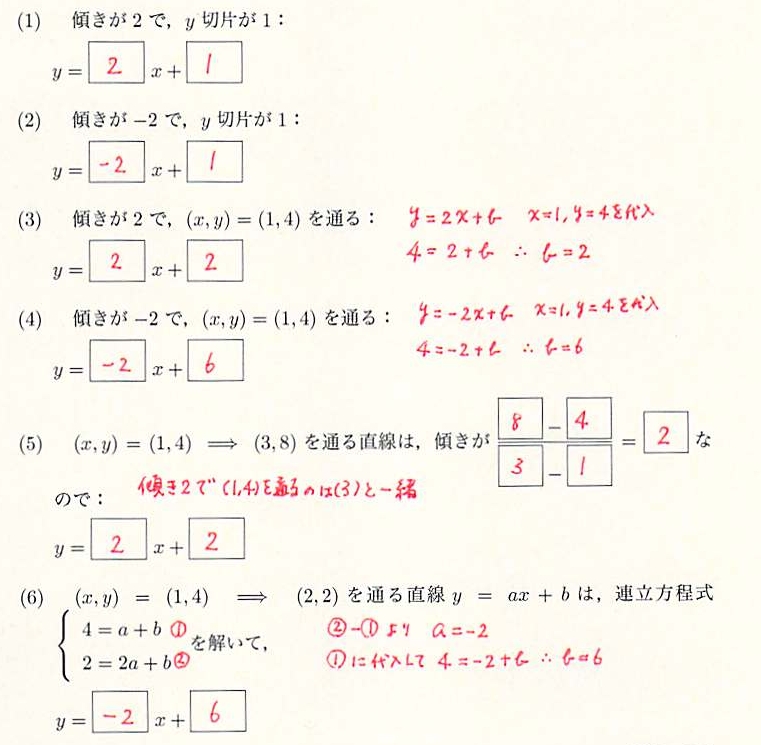 (1) 傾きが 2 で，y 切片が 1：
y = 2 x + 1
(2) 傾きが −2 で，y 切片が 1：
y = -2 x + 1
(3) 傾きが 2 で，(x, y) = (1, 4) を通る： y=2x+b x=1, y=4を代入
4=2+b ∴ b=2
y = 2 x + 2
(4) 傾きが −2 で，(x, y) = (1, 4) を通る： y=-2x+b x=1, y=4を代入
4=-2+b ∴ b=6
y = -2 x + 6
(5) (x, y) = (1, 4) ⟹ (3, 8) を通る直線は，傾きが 8 − 4 / 3 − 1 = 2 な
ので： 傾き2で(1,4)を通るのは(3)と一緒
y = 2 x + 2
(6) (x, y) = (1, 4) ⟹ (2, 2) を通る直線 y = ax + b は，連立方程式
4 = a + b ① ②-①より a=-2
を解いて，
2 = 2a + b ② ①に代入して 4=-2+b ∴ b=6
y = -2 x + 6